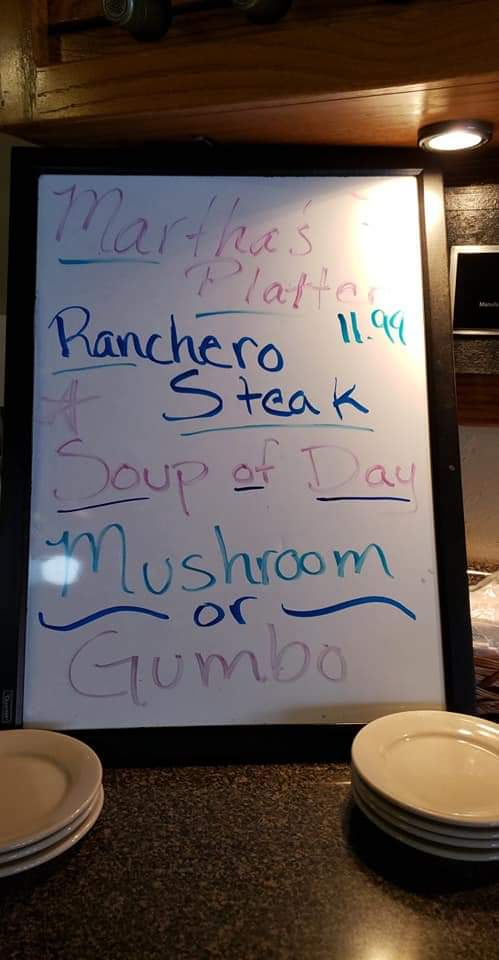 Martha's
Platter
11.99
Ranchero
Steak
Soup of Day
Mushroom
or
Gumbo